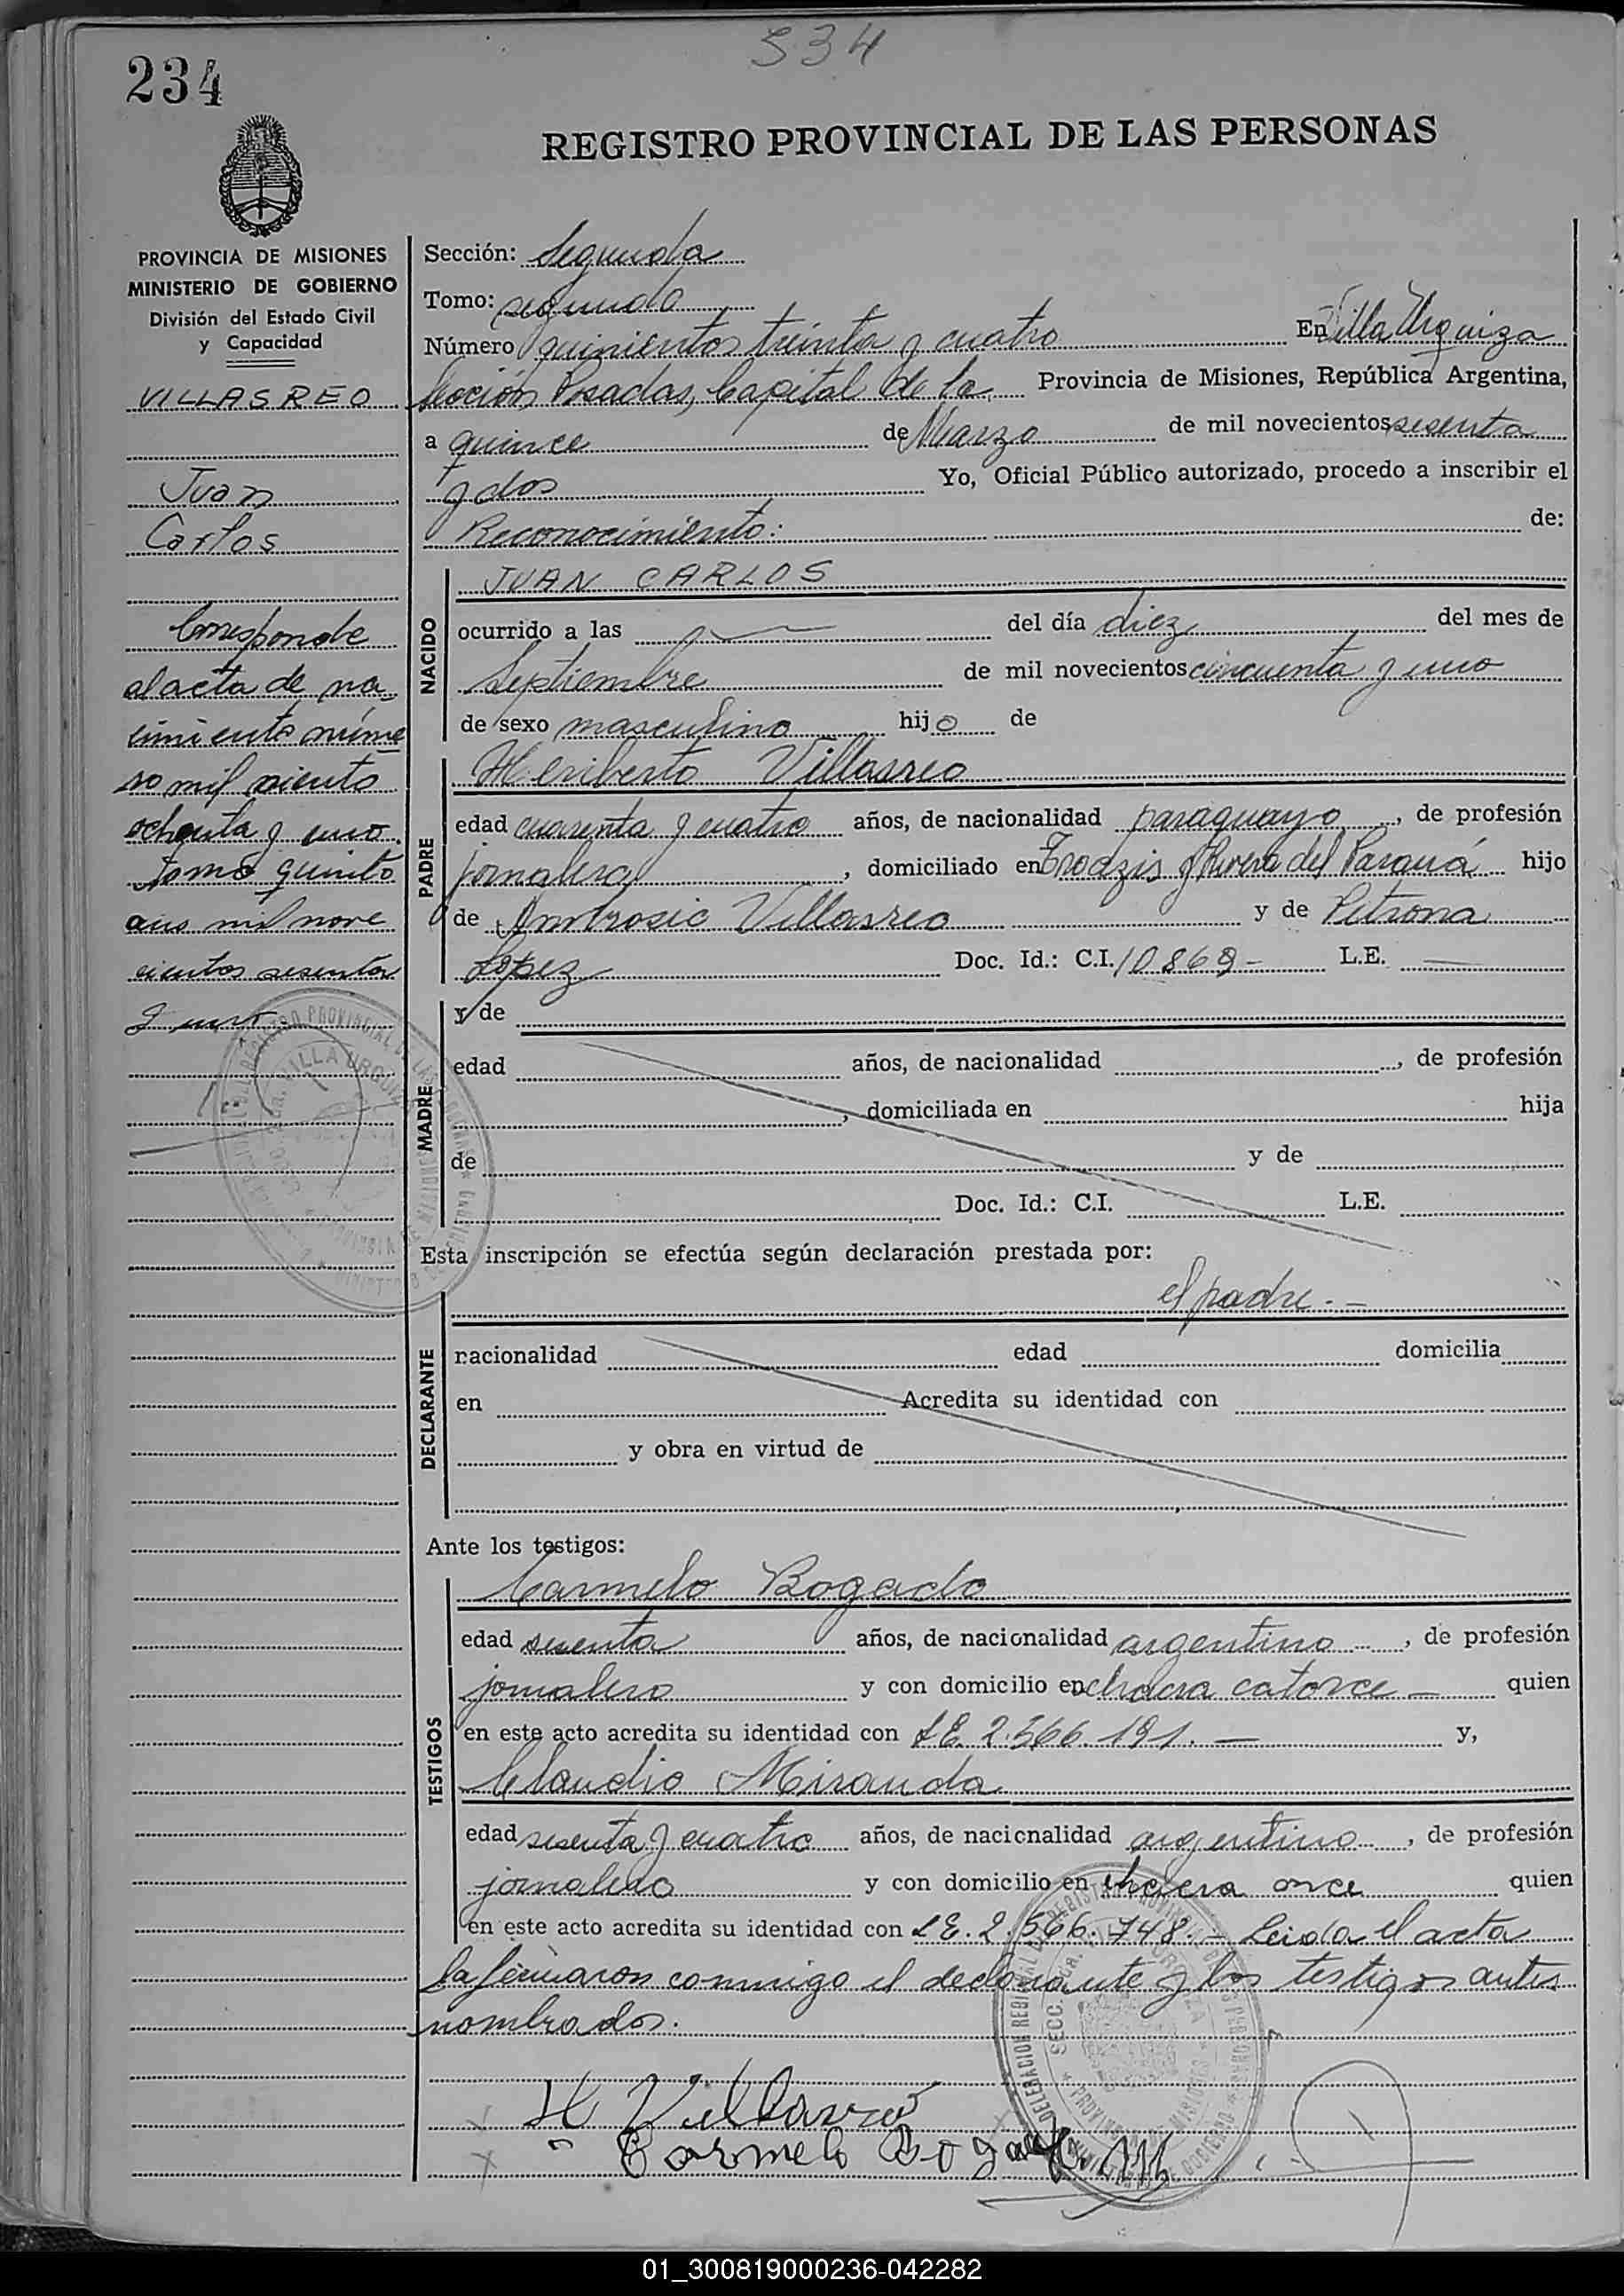 534
234
REGISTRO PROVINCIAL DE LAS PERSONAS
PROVINCIA DE MISIONES
MINISTERIO DE GOBIERNO
División del Estado Civil
y Capacidad
VILLASREO
Juan
Carlos
Corresponde
al acta de na
cimiento núme
ro mil ciento
ochenta y uno
tomo quinto
año mil nove
cientos sesenta
y uno
Sección: Segunda
Tomo: segundo
Número quinientos treinta y cuatro En Villa Urquiza
Sección Posadas, Capital de la Provincia de Misiones, República Argentina,
a quince de Marzo de mil novecientos sesenta
y dos Yo, Oficial Público autorizado, procedo a inscribir el
Reconocimiento: de:
NACIDO
JUAN CARLOS
ocurrido a las del día diez del mes de
Septiembre de mil novecientos cincuenta y uno
de sexo masculino hijo de
PADRE
Heriberto Villasreo
edad cuarenta y cuatro años, de nacionalidad paraguayo, de profesión
jornalero, domiciliado en y Rivera del Paraná hijo
de Ambrosio Villasreo y de Petrona
López Doc. Id.: C.I. 10869- L.E. —
MADRE
y de
edad años, de nacionalidad , de profesión
, domiciliada en hija
de y de
Doc. Id.: C.I. L.E.
Esta inscripción se efectúa según declaración prestada por:
el padre.-
DECLARANTE
nacionalidad edad domicilia
en Acredita su identidad con
y obra en virtud de
Ante los testigos:
TESTIGOS
Carmelo Bogado
edad sesenta años, de nacionalidad argentino, de profesión
jornalero y con domicilio en chacra catorce — quien
en este acto acredita su identidad con LE. 2.566.191. — y,
Claudio Miranda
edad sesenta y cuatro años, de nacionalidad argentino, de profesión
jornalero y con domicilio en chacra once quien
en este acto acredita su identidad con LE. 2.566.748.- Leida el acta
la firmaron conmigo el declarante y los testigos antes
nombrados.
H Villasreo
Carmelo Bogado
01_300819000236-042282